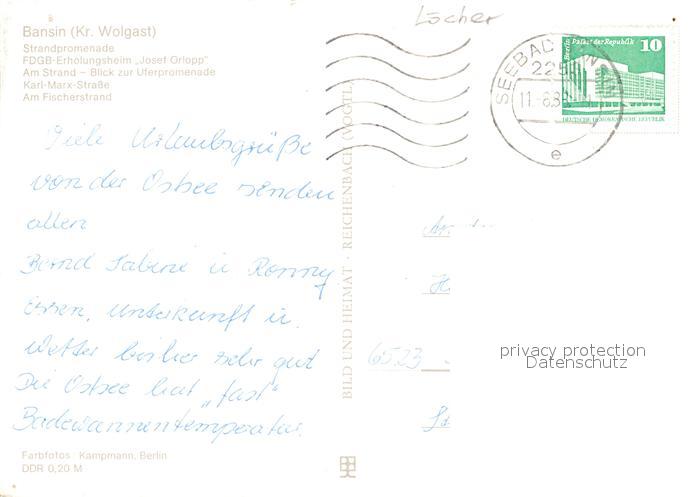 Löcher
Bansin (Kr. Wolgast)
Strandpromenade
FDGB-Erholungsheim „Josef Orlopp"
Am Strand – Blick zur Uferpromenade
Karl-Marx-Straße
Am Fischerstrand
Viele Urlaubsgrüße
von der Ostsee senden
allen
Bernd Sabine u Ronny
Essen, Unterkunft u.
Wetter bisher sehr gut
Die Ostsee hat „fast"
Badewannentemperatur.
Farbfotos: Kampmann, Berlin
DDR 0,20 M
BILD UND HEIMAT · REICHENBACH (VOGTL)
SEEBAD BANSIN
2255
11.-8.8
e
Berlin, Palast der Republik
10
DEUTSCHE DEMOKRATISCHE REPUBLIK
6523
privacy protection
Datenschutz